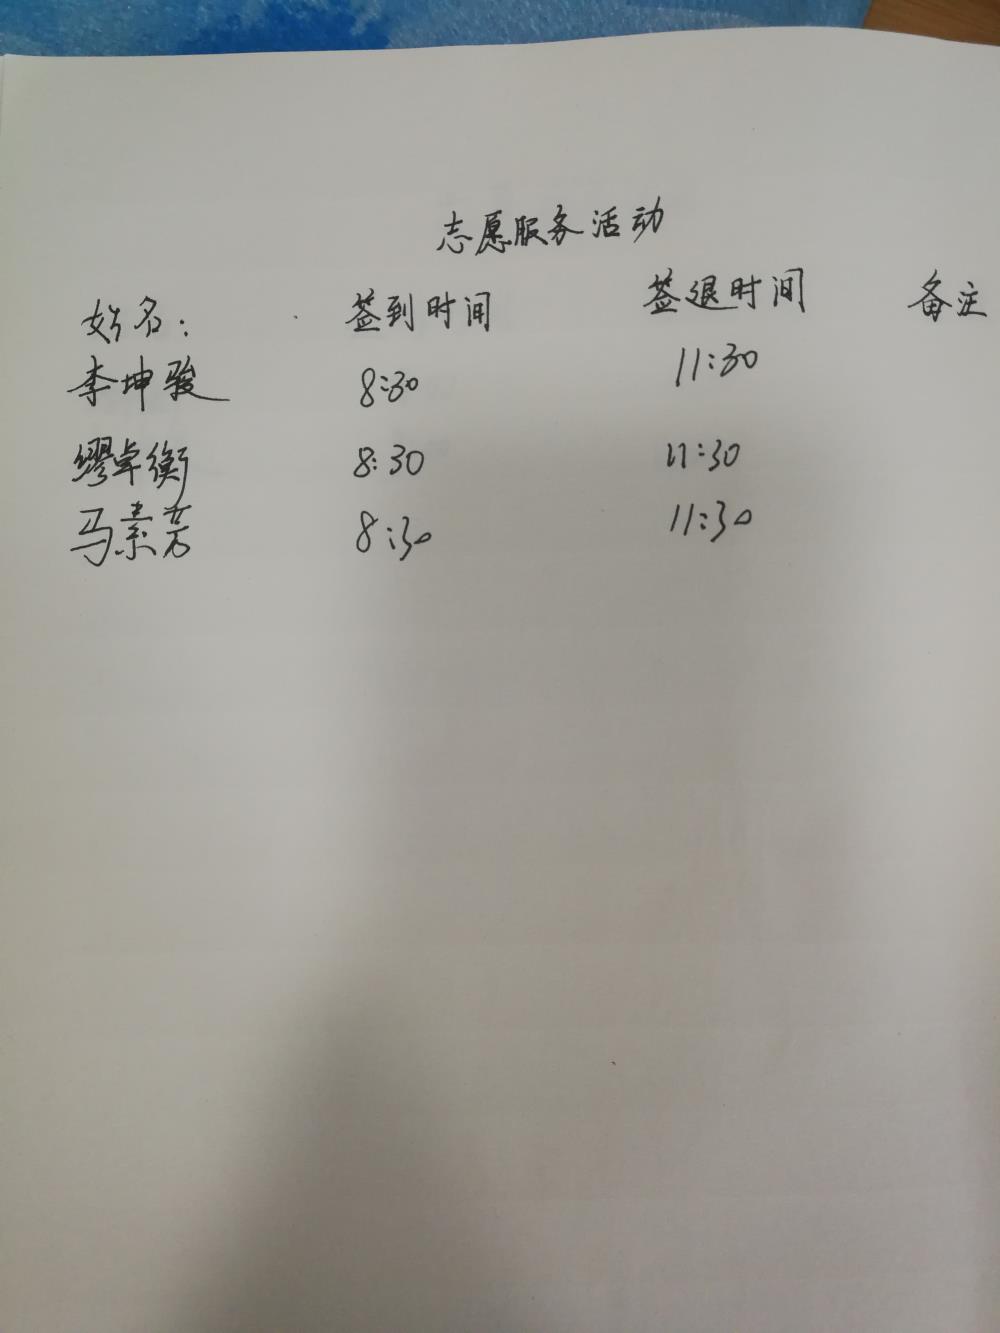 志愿服务活动
姓名： 签到时间 签退时间 备注
李坤骏 8:30 11:30
缪卓衡 8:30 11:30
马素芳 8:30 11:30